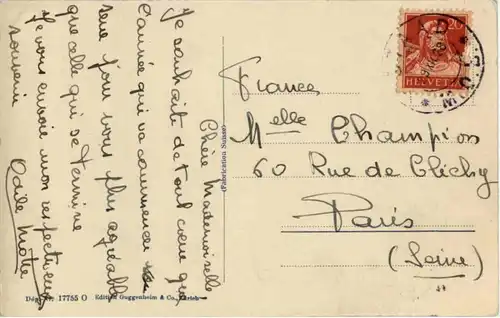 Chère Mademoiselle
Je souhaite de tout coeur que
l'année qui va commencer
sera pour vous plus agréable
que celle qui se termine
Je vous envoie mon respectueux
souvenir
Odile
(Fabrication Suisse)
Dép. 17755 O Edition Guggenheim & Co., Zürich
20
HELVETIA
France
Melle Champion
60 Rue de Clichy
Paris
(Seine)